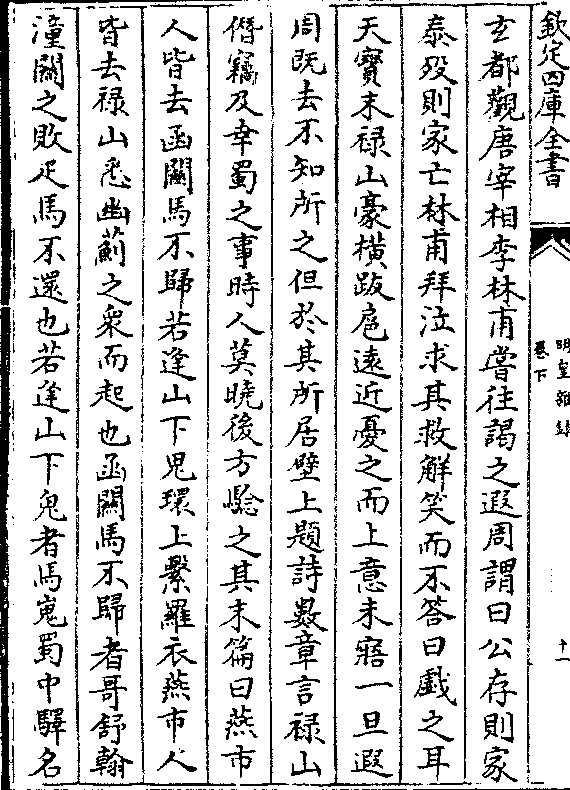 欽定四庫全書
明皇雜錄
卷下
十一
玄都觀唐宰相李林甫嘗往謁之遐周謂曰公存則家
泰殁則家亡林甫拜泣求其救解笑而不答曰戲之耳
天寶末禄山豪横跋扈遠近憂之而上意未寤一旦遐
周既去不知所之但於其所居壁上題詩數章言禄山
僭竊及幸蜀之事時人莫曉後方驗之其末篇曰燕市
人皆去函關馬不歸若逢山下鬼環上繫羅衣燕市人
皆去禄山悉幽薊之衆而起也函關馬不歸者哥舒翰
潼關之敗疋馬不還也若逢山下鬼者馬嵬蜀中驛名